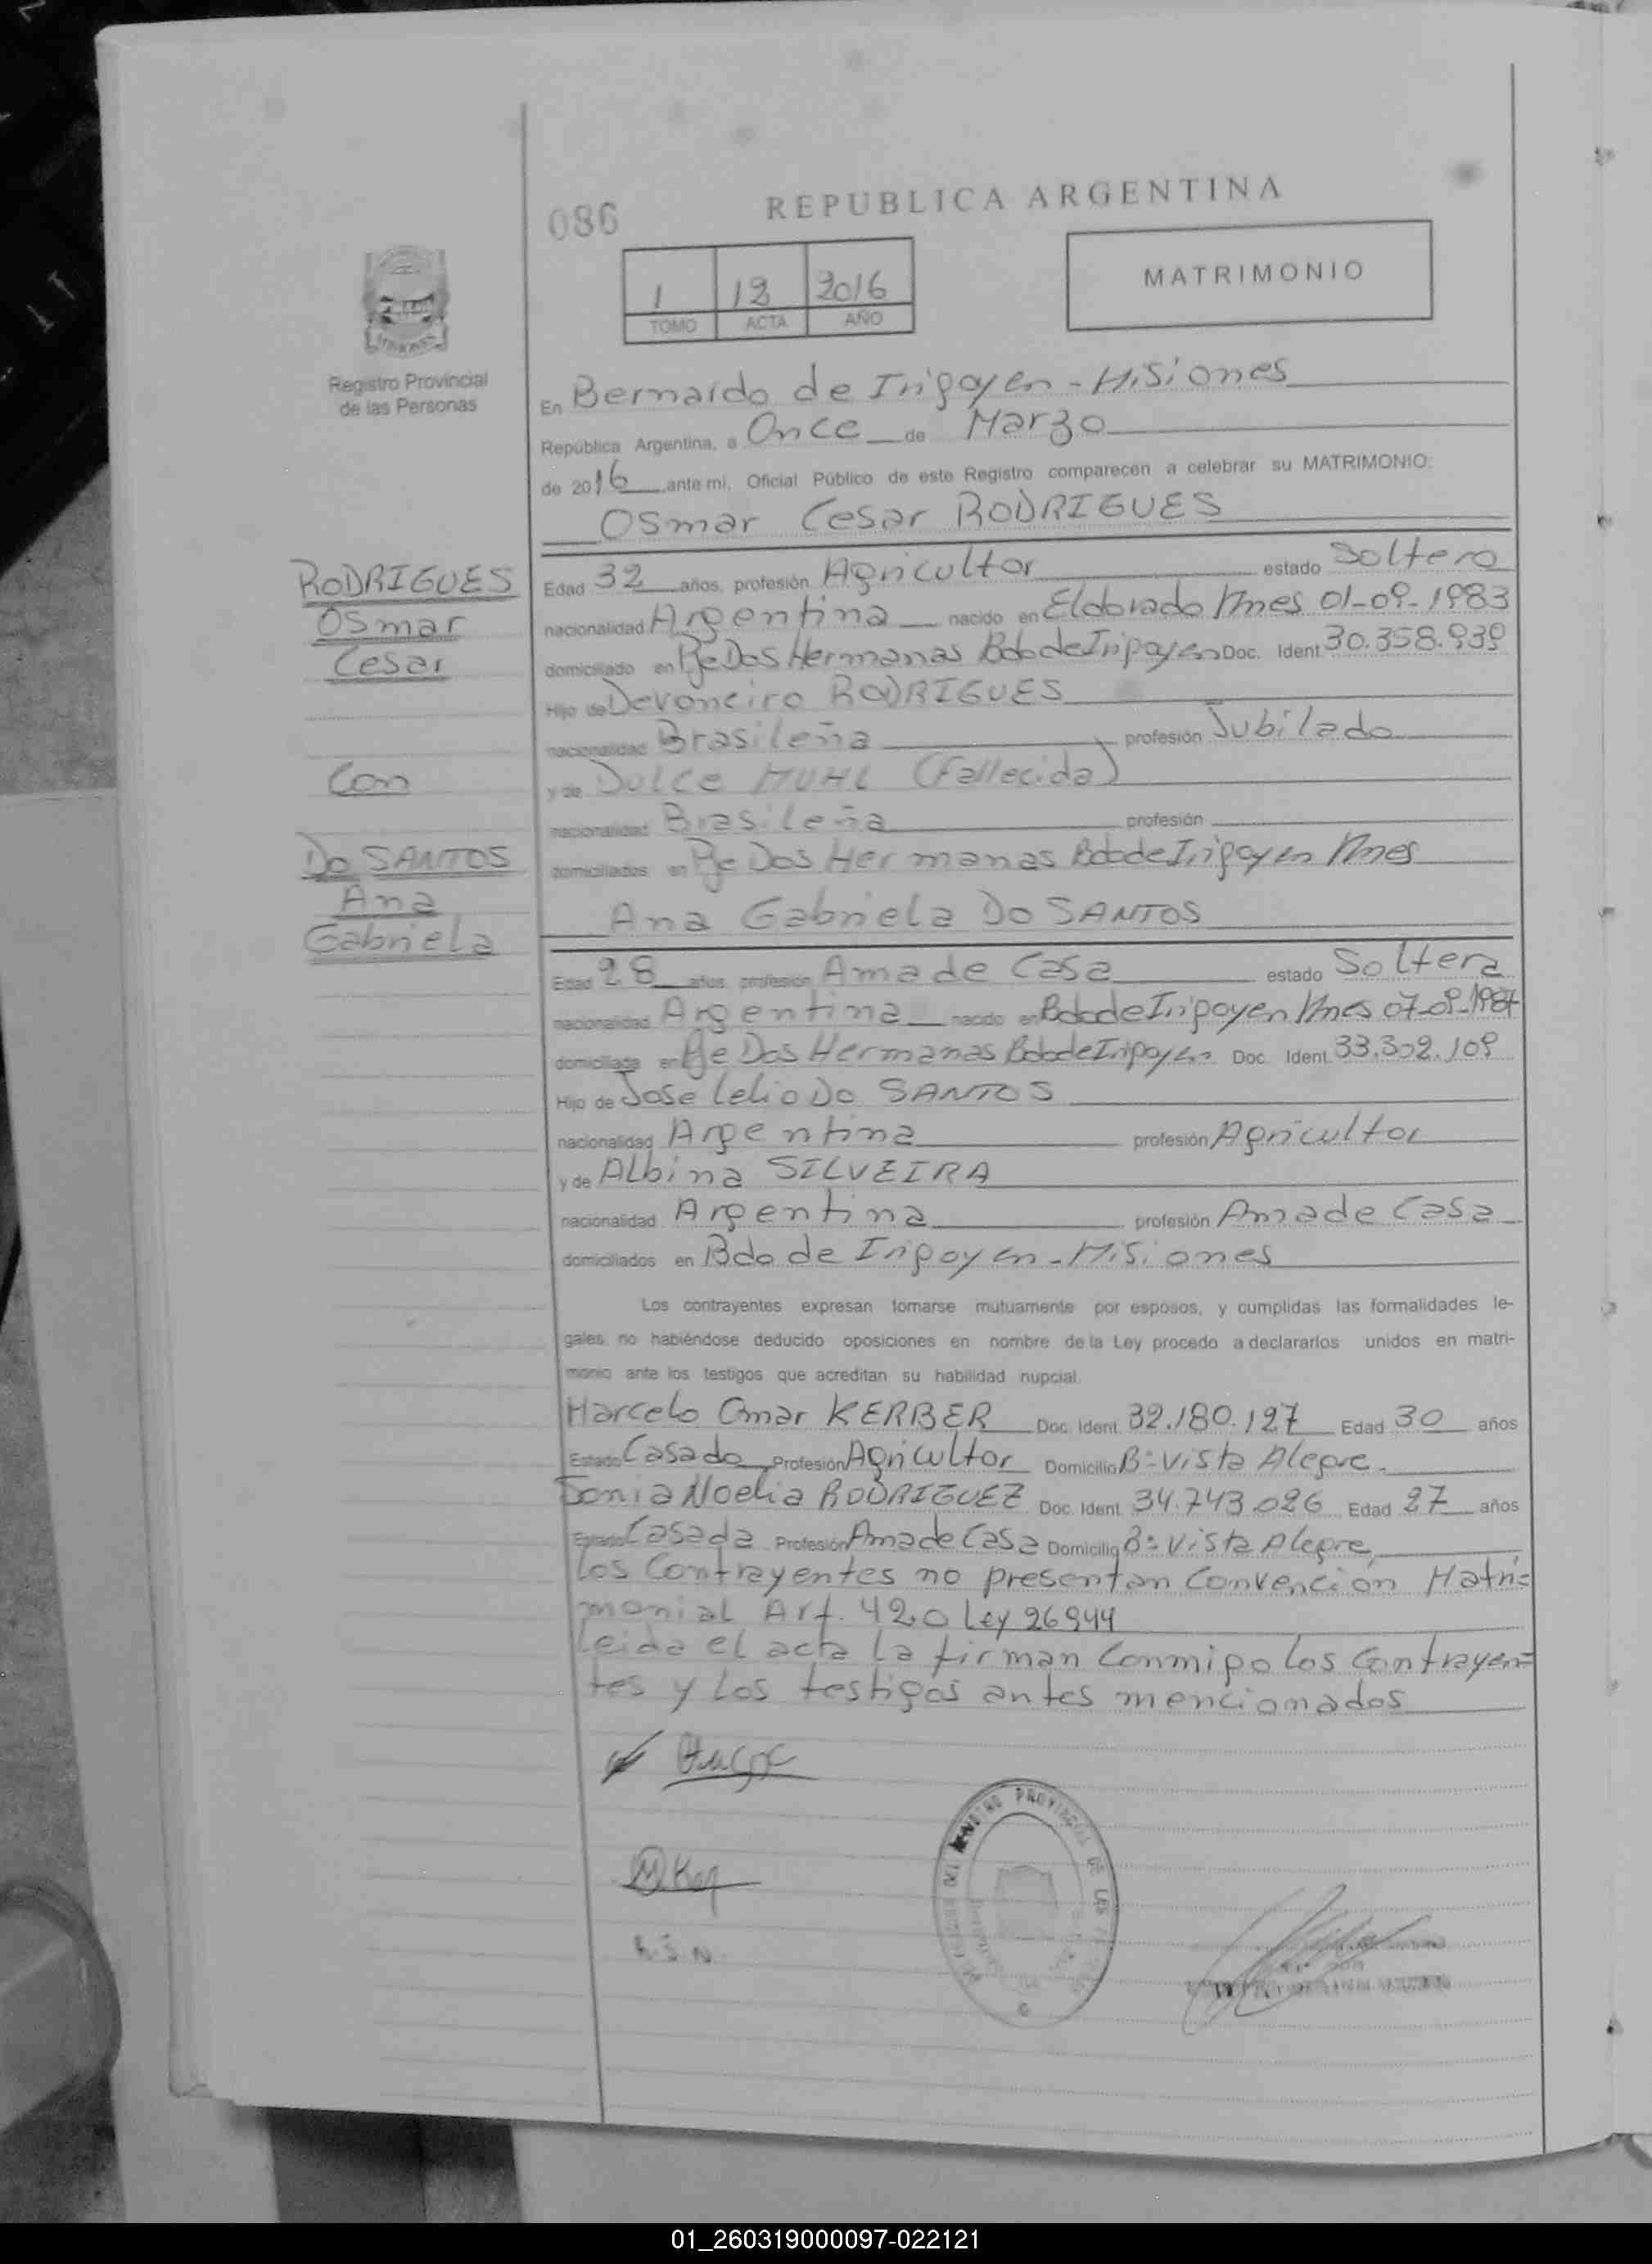 086
REPUBLICA ARGENTINA
1 12 2016
TOMO ACTA AÑO
MATRIMONIO
Registro Provincial
de las Personas
En Bernardo de Irigoyen - Misiones
República Argentina, a Once de Marzo
de 2016 ante mi, Oficial Público de este Registro comparecen a celebrar su MATRIMONIO:
Osmar Cesar RODRIGUES
RODRIGUES
Osmar
Cesar
Con
Do SANTOS
Ana
Gabriela
Edad 32 años, profesión Agricultor estado Soltero
nacionalidad Argentina nacido en Eldorado Mnes 01-09-1983
domiciliado en Pje Dos Hermanas Bdo de Irigoyen Doc. Ident. 30.358.939
Hijo de Devoneiro RODRIGUES
nacionalidad Brasileña profesión Jubilado
y de Dulce MUHL (Fallecida)
nacionalidad Brasileña profesión
domiciliados en Pje Dos Hermanas Bdo de Irigoyen Mnes
Ana Gabriela Do SANTOS
Edad 28 años, profesión Ama de Casa estado Soltera
nacionalidad Argentina nacido en Bdo de Irigoyen Mnes 07-09-1987
domiciliada en Pje Dos Hermanas Bdo de Irigoyen Doc. Ident. 33.302.109
Hijo de Jose Lelio Do SANTOS
nacionalidad Argentina profesión Agricultor
y de Albina SILVEIRA
nacionalidad Argentina profesión Ama de Casa
domiciliados en Bdo de Irigoyen - Misiones
Los contrayentes expresan tomarse mutuamente por esposos, y cumplidas las formalidades le-
gales no habiéndose deducido oposiciones en nombre de la Ley procedo a declararlos unidos en matri-
monio ante los testigos que acreditan su habilidad nupcial.
Marcelo Omar KERBER Doc. Ident. 32.180.127 Edad 30 años
Estado Casado Profesión Agricultor Domicilio Bº Vista Alegre.
Sonia Noelia RODRIGUEZ Doc. Ident. 34.743.026 Edad 27 años
Estado Casada Profesión Ama de Casa Domicilio Bº Vista Alegre
Los Contrayentes no presentan Convención Matri=
monial Art. 420 Ley 26944
Leida el acta la firman conmigo los Contrayen=
tes y los testigos antes mencionados
R.S.N.
01_260319000097-022121